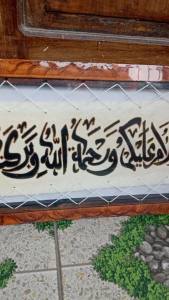 لام عليكم ورحمة الله وبركا